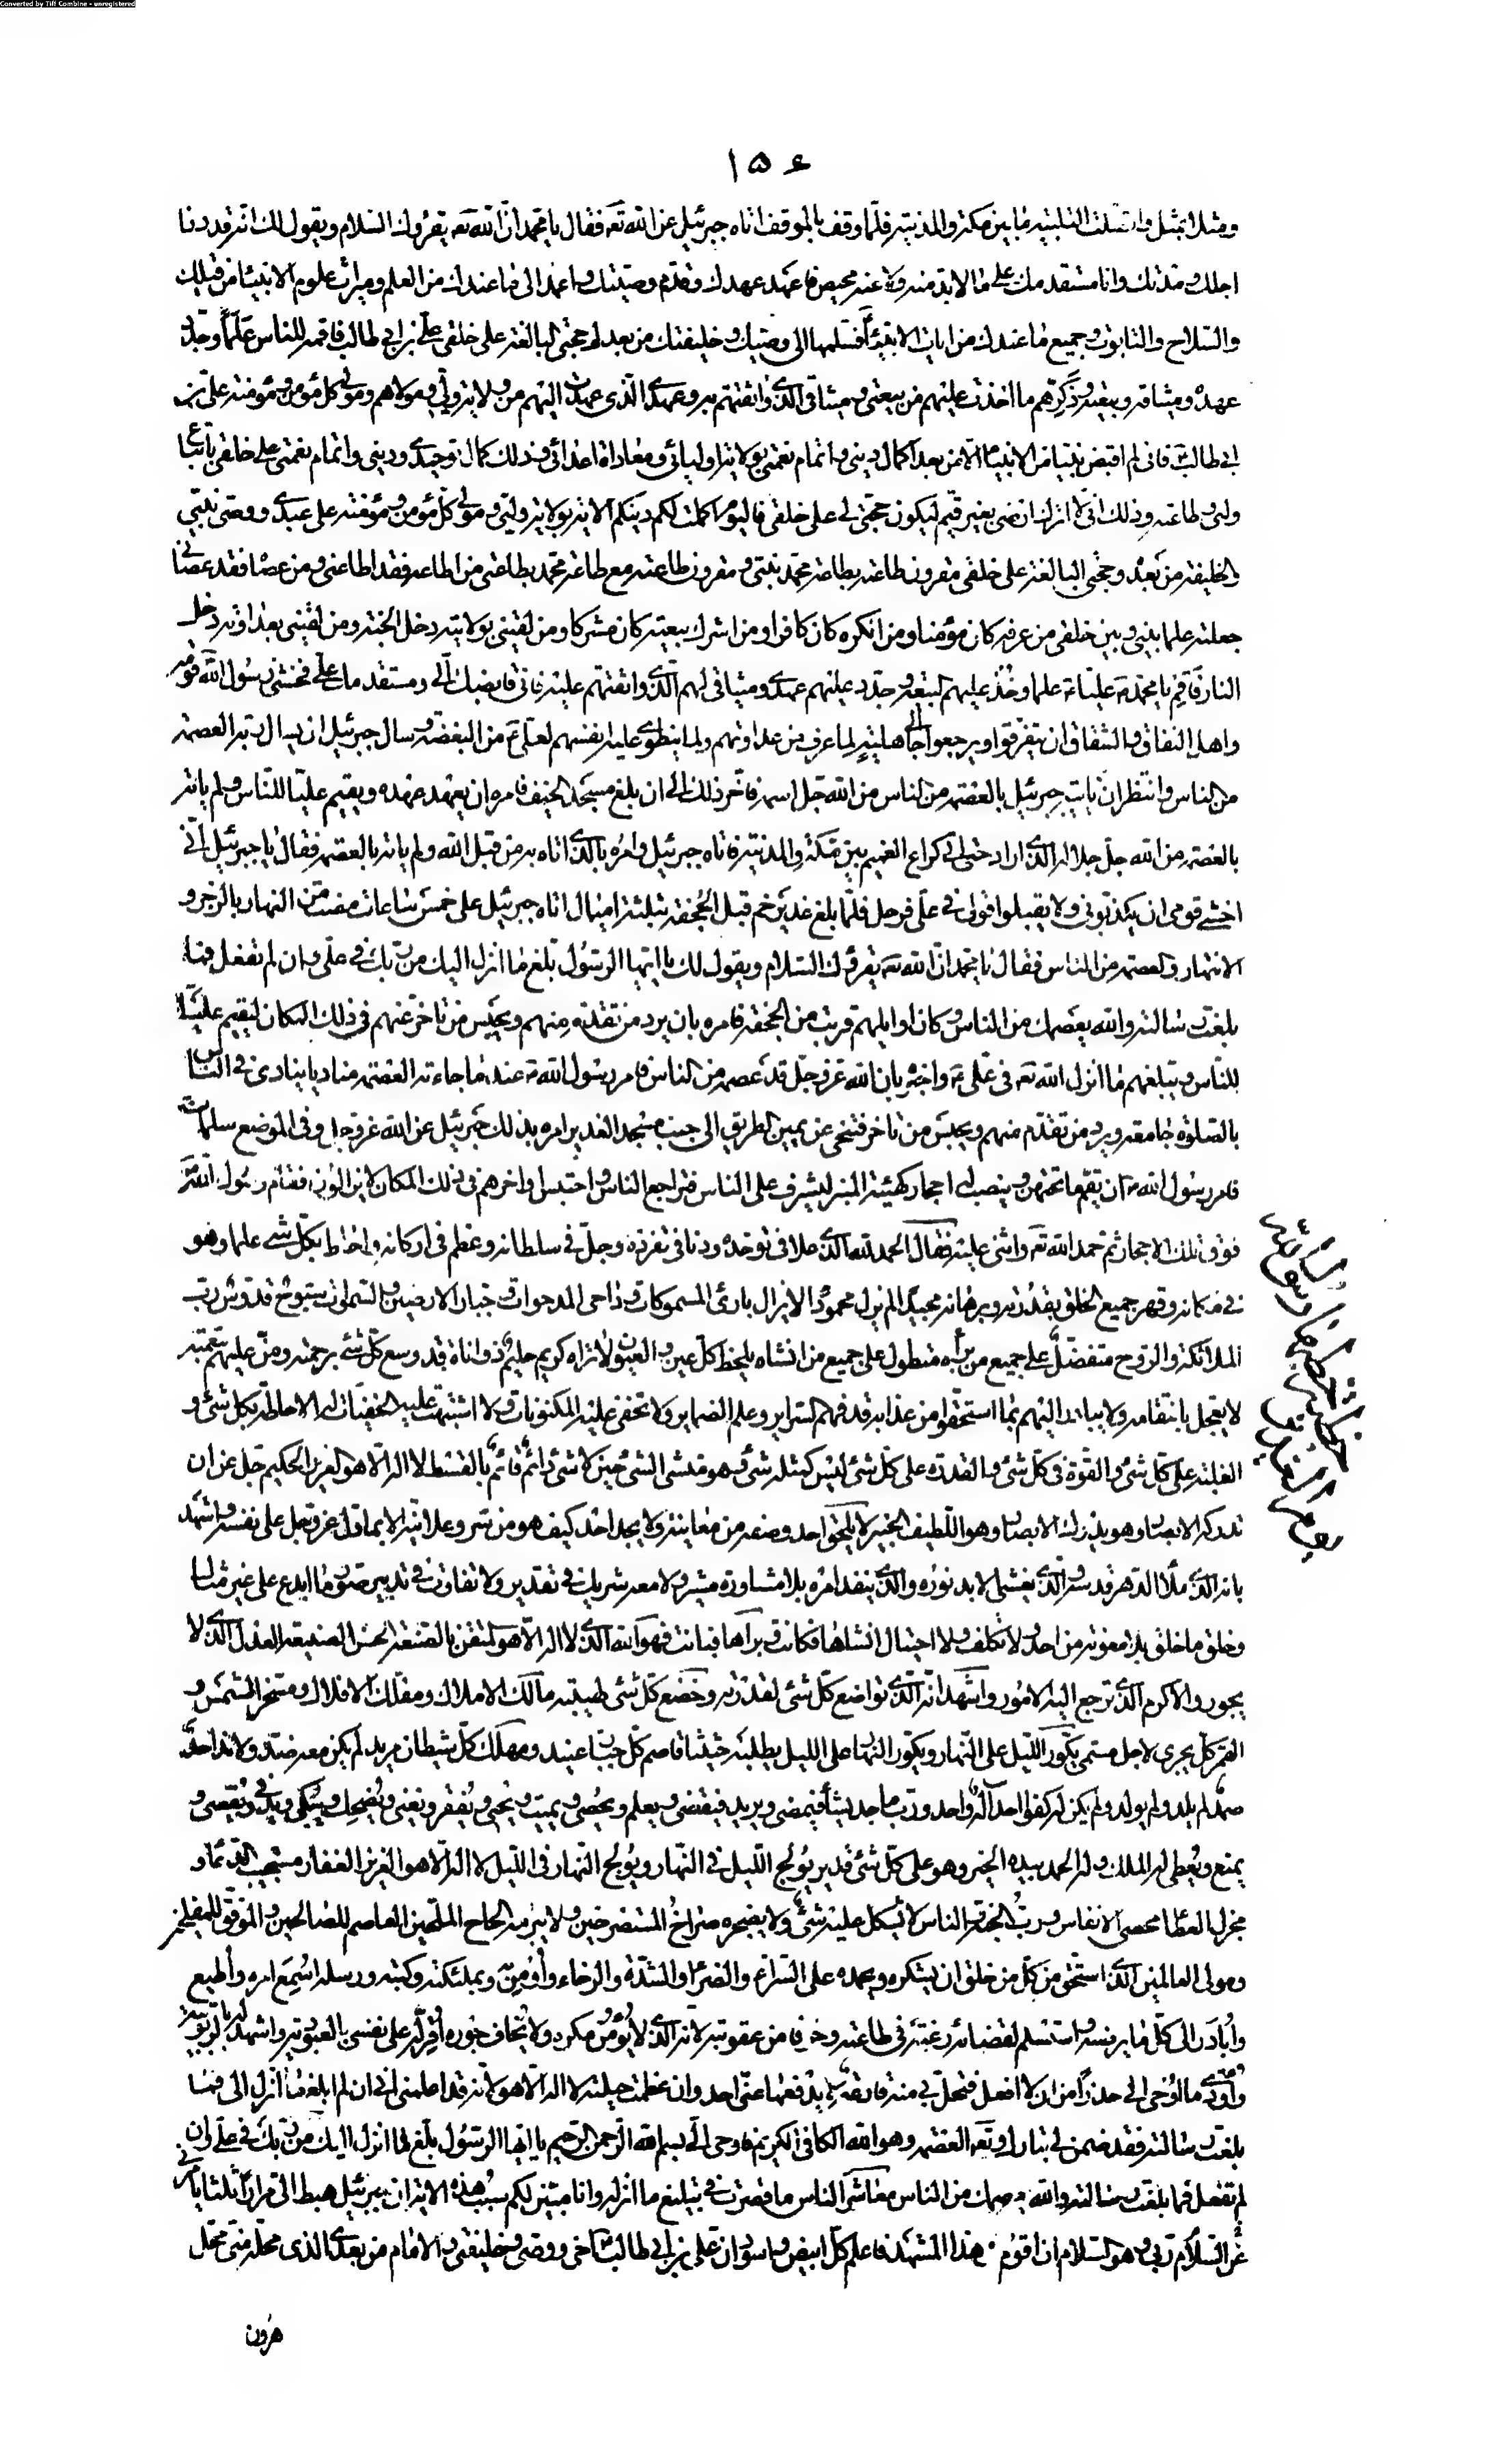 Converted by Tiff Combine - unregistered
١٥٤
ومثلا بمثل واتصلت التلبية ما بين مكة والمدينة فلما وقف بالموقف اتاه جبرئيل عن الله تعه فقال يا محمد ان الله تعه يقرؤك السلام ويقول لك انه قد دنا
اجلك ومدتك وانا مستقدمك على ما لا بد منه ولا عنه محيص فاعهد عهدك وقدم وصيتك واعمد الى ما عندك من العلم وميراث علوم الانبياء من قبلك
والسلاح والتابوت وجميع ما عندك من ايات الانبياء فسلمها الى وصيك وخليفتك من بعدك حجتى البالغة على خلقى على بن ابى طالب فاقمه للناس علما وجدد
عهده وميثاقه وبيعته وذكرهم ما اخذت عليهم من بيعتى وميثاقى الذى واثقتهم به وعهدى الذى عهدت اليهم من ولاية وليى ومولاهم ومولى كل مؤمن ومؤمنة على بن
ابى طالب فانى لم اقبض نبيا من الانبياء الا من بعد اكمال دينى واتمام نعمتى بولاية اوليائى ومعاداة اعدائى وذلك كمال توحيدى ودينى واتمام نعمتى على خلقى باتباع
وليى وطاعته وذلك انى لا اترك ارضى بغير قيم ليكون حجة لى على خلقى فاليوم اكملت لكم دينكم الاية بولاية وليى ومولى كل مؤمن ومؤمنة على عبدى ووصى نبيى
والخليفة من بعده وحجتى البالغة على خلقى مقرون طاعته بطاعة محمد نبيى ومقرون طاعته مع طاعة محمد بطاعتى من اطاعه فقد اطاعنى ومن عصاه فقد عصانى
جعلته علما بينى وبين خلقى من عرفه كان مؤمنا ومن انكره كان كافرا ومن اشرك ببيعته كان مشركا ومن لقينى بولايته دخل الجنة ومن لقينى بعداوته دخل
النار فاقم يا محمد ص عليا ع علما وخذ عليهم البيعة وجدد عليهم عهدى وميثاقى لهم الذى واثقتهم عليه فانى قابضك الى ومستقدمك على فخشى رسول الله ص قومه
واهل النفاق والشقاق ان يتفرقوا ويرجعوا الى جاهلية لما عرف من عداوتهم ولما ينطوى عليه انفسهم لعلى ع من البغضة وسال جبرئيل ان يسال ربه العصمة
من الناس وانتظر ان ياتيه جبرئيل بالعصمة من الناس من الله جل اسمه فاخر ذلك الى ان بلغ مسجد الخيف فامره ان يعهد عهده ويقيم عليا للناس ولم ياته
بالعصمة من الله جل جلاله الذى اراد حتى اتى كراع الغميم بين مكة والمدينة فاتاه جبرئيل وامره بالذى اتاه به من قبل الله ولم ياته بالعصمة فقال يا جبرئيل انى
اخشى قومى ان يكذبونى ولا يقبلوا قولى فى على فرحل فلما بلغ غدير خم قبل الجحفة بثلثة اميال اتاه جبرئيل على خمس ساعات مضت من النهار بالزجر و
الانتهار والعصمة من الناس فقال يا محمد ان الله تعه يقرؤك السلام ويقول لك يا ايها الرسول بلغ ما انزل اليك من ربك فى على وان لم تفعل فما
بلغت رسالته والله يعصمك من الناس وكان اوايلهم قريب من الجحفة فامره بان يرد من تقدم منهم ويحبس من تاخر عنهم فى ذلك المكان ليقيم عليا
للناس ويبلغهم ما انزل الله تعه فى على ع واخبره بان الله عز وجل قد عصمه من الناس فامر رسول الله ص عند ما جاءته العصمة مناديا ينادى فى الناس
بالصلوة جامعة ويرد من تقدم منهم ويحبس من تاخر فتنحى عن يمين الطريق الى جنب مسجد الغدير امره بذلك جبرئيل عن الله عز وجل وفى الموضع سلمات
فامر رسول الله ص ان يقم ما تحتهن وينصب له احجار كهيئة المنبر ليشرف على الناس فتراجع الناس واحتبس اواخرهم فى ذلك المكان لا يزالون فقام رسول الله ص
فوق تلك الاحجار ثم حمد الله تعه واثنى عليه فقال الحمد لله الذى علا فى توحده ودنا فى تفرده وجل فى سلطانه وعظم فى اركانه واحاط بكل شىء علما وهو
فى مكانه وقهر جميع الخلق بقدرته وبرهانه مجيدا لم يزل محمودا لا يزال بارئ المسموكات وداحى المدحوات وجبار الارضين والسموات سبوح قدوس رب
الملائكة والروح متفضل على جميع من براه متطول على جميع من انشاه يلحظ كل عين والعيون لا تراه كريم حليم ذو اناة قد وسع كل شىء برحمته ومن عليهم بنعمته
لا يعجل بانتقامه ولا يبادر اليهم بما استحقوا من عذابه قد فهم السراير وعلم الضماير ولا تخفى عليه المكنونات ولا اشتبهت عليه الخفيات له الاحاطة بكل شىء و
الغلبة على كل شىء والقوة فى كل شىء والقدرة على كل شىء ليس كمثله شىء وهو منشى الشىء حين لا شىء دائم قائم بالقسط لا اله الا هو العزيز الحكيم جل عن ان
تدركه الابصار وهو يدرك الابصار وهو اللطيف الخبير لا يلحق احد وصفه من معاينة ولا يجد احد كيف هو من سر وعلانية الا بما دل عز وجل على نفسه واشهد
بانه الذى ملا الدهر قدسه والذى يغشى الابد نوره والذى ينفذ امره بلا مشاورة مشير ولا معه شريك فى تقدير ولا تفاوت فى تدبير صور ما ابدع على غير مثال
وخلق ما خلق بلا معونة من احد ولا تكلف ولا احتيال انشاها فكانت وبراها فبانت فهو الله الذى لا اله الا هو المتقن الصنعة الحسن الصنيعة العدل الذى لا
يجور والاكرم الذى ترجع اليه الامور واشهد انه الذى تواضع كل شىء لقدرته وخضع كل شىء لهيبته مالك الاملاك ومفلك الافلاك ومسخر الشمس و
القمر كل يجرى لاجل مسمى يكور الليل على النهار ويكور النهار على الليل يطلبه حثيثا قاصم كل جبار عنيد ومهلك كل شيطان مريد لم يكن معه ضد ولا ند احد
صمد لم يلد ولم يولد ولم يكن له كفوا احد اله واحد ورب ماجد يشاء فيمضى ويريد فيقضى ويعلم ويحصى ويميت ويحيى ويفقر ويغنى ويضحك ويبكى ويدنى ويقصى و
يمنع ويعطى له الملك وله الحمد بيده الخير وهو على كل شىء قدير يولج الليل فى النهار ويولج النهار فى الليل لا اله الا هو العزيز الغفار مستجيب الدعاء و
مجزل العطاء محصى الانفاس ورب الجنة والناس لا يشكل عليه شىء ولا يضجره صراخ المستصرخين ولا يبرمه الحاح الملحين العاصم للصالحين والموفق للمفلحين
ومولى العالمين الذى استحق من كل من خلق ان يشكره ويحمده على السراء والضراء والشدة والرخاء واومن به وبملئكته وكتبه ورسله اسمع امره واطيع
وابادر الى كل ما يرضيه واستسلم لقضائه رغبة فى طاعته وخوفا من عقوبته لانه الذى لا يؤمن مكره ولا يخاف جوره اقر له على نفسى بالعبودية واشهد له بالربوبية
واؤدى ما اوحى الى حذرا من ان لا افعل فتحل بى منه قارعة لا يدفعها عنى احد وان عظمت حيلته لا اله الا هو لانه قد اعلمنى انى ان لم ابلغ ما انزل الى فما
بلغت رسالته فقد ضمن لى تبارك وتعه العصمة وهو الله الكافى الكريم فاوحى الى بسم الله الرحمن الرحيم يا ايها الرسول بلغ ما انزل اليك من ربك فى على وان
لم تفعل فما بلغت رسالته والله يعصمك من الناس معاشر الناس ما قصرت فى تبليغ ما انزله وانا مبين لكم سبب هذه الاية ان جبرئيل هبط الى مرارا ثلثا يامرنى
عن السلام ربى وهو السلام ان اقوم فى هذا المشهد فاعلم كل ابيض واسود ان على بن ابى طالب اخى ووصى وخليفتى والامام من بعدى الذى محله منى محل
هرون